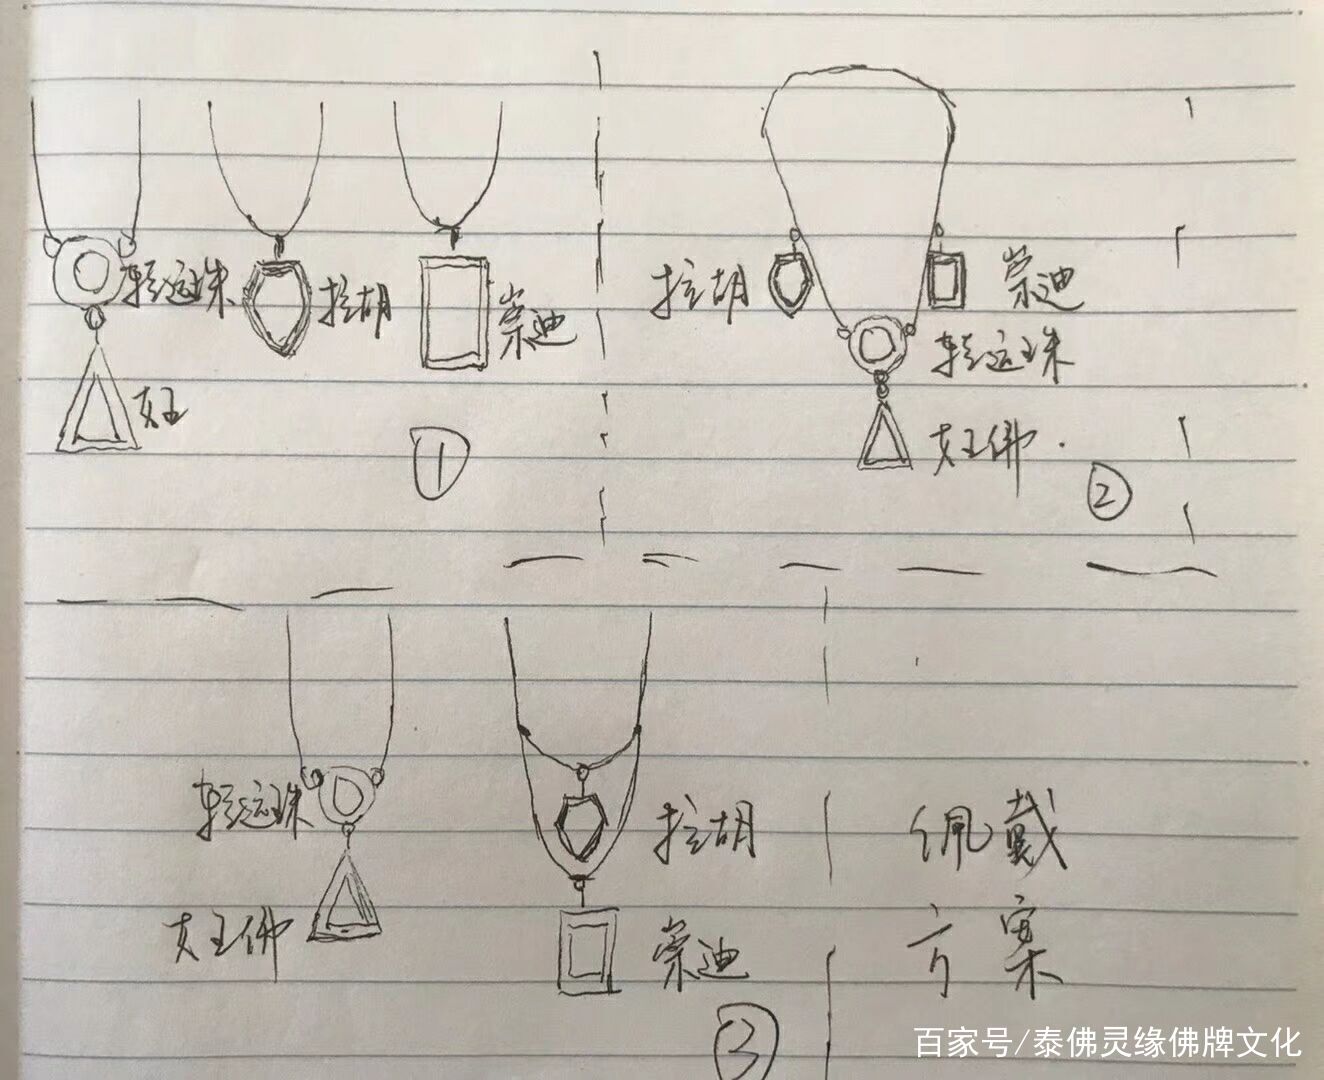 转运珠
拉胡
崇迪
女王
①
拉胡
崇迪
转运珠
女王佛
②
转运珠
女王佛
拉胡
崇迪
③
佩戴
方案
百家号/泰佛灵缘佛牌文化